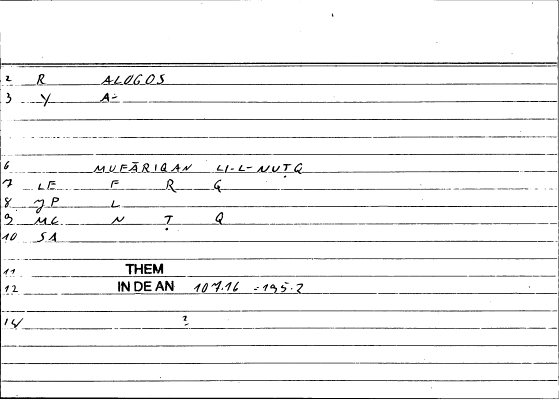 2 R ALOGOS
3 Y A-
6 MUFĀRIQAN LI-L-NUṬQ
7 LE F R Q
8 JP L
9 MC N Ṭ Q
10 SA
11 THEM
12 IN DE AN 107.16 =195.2
14 ?